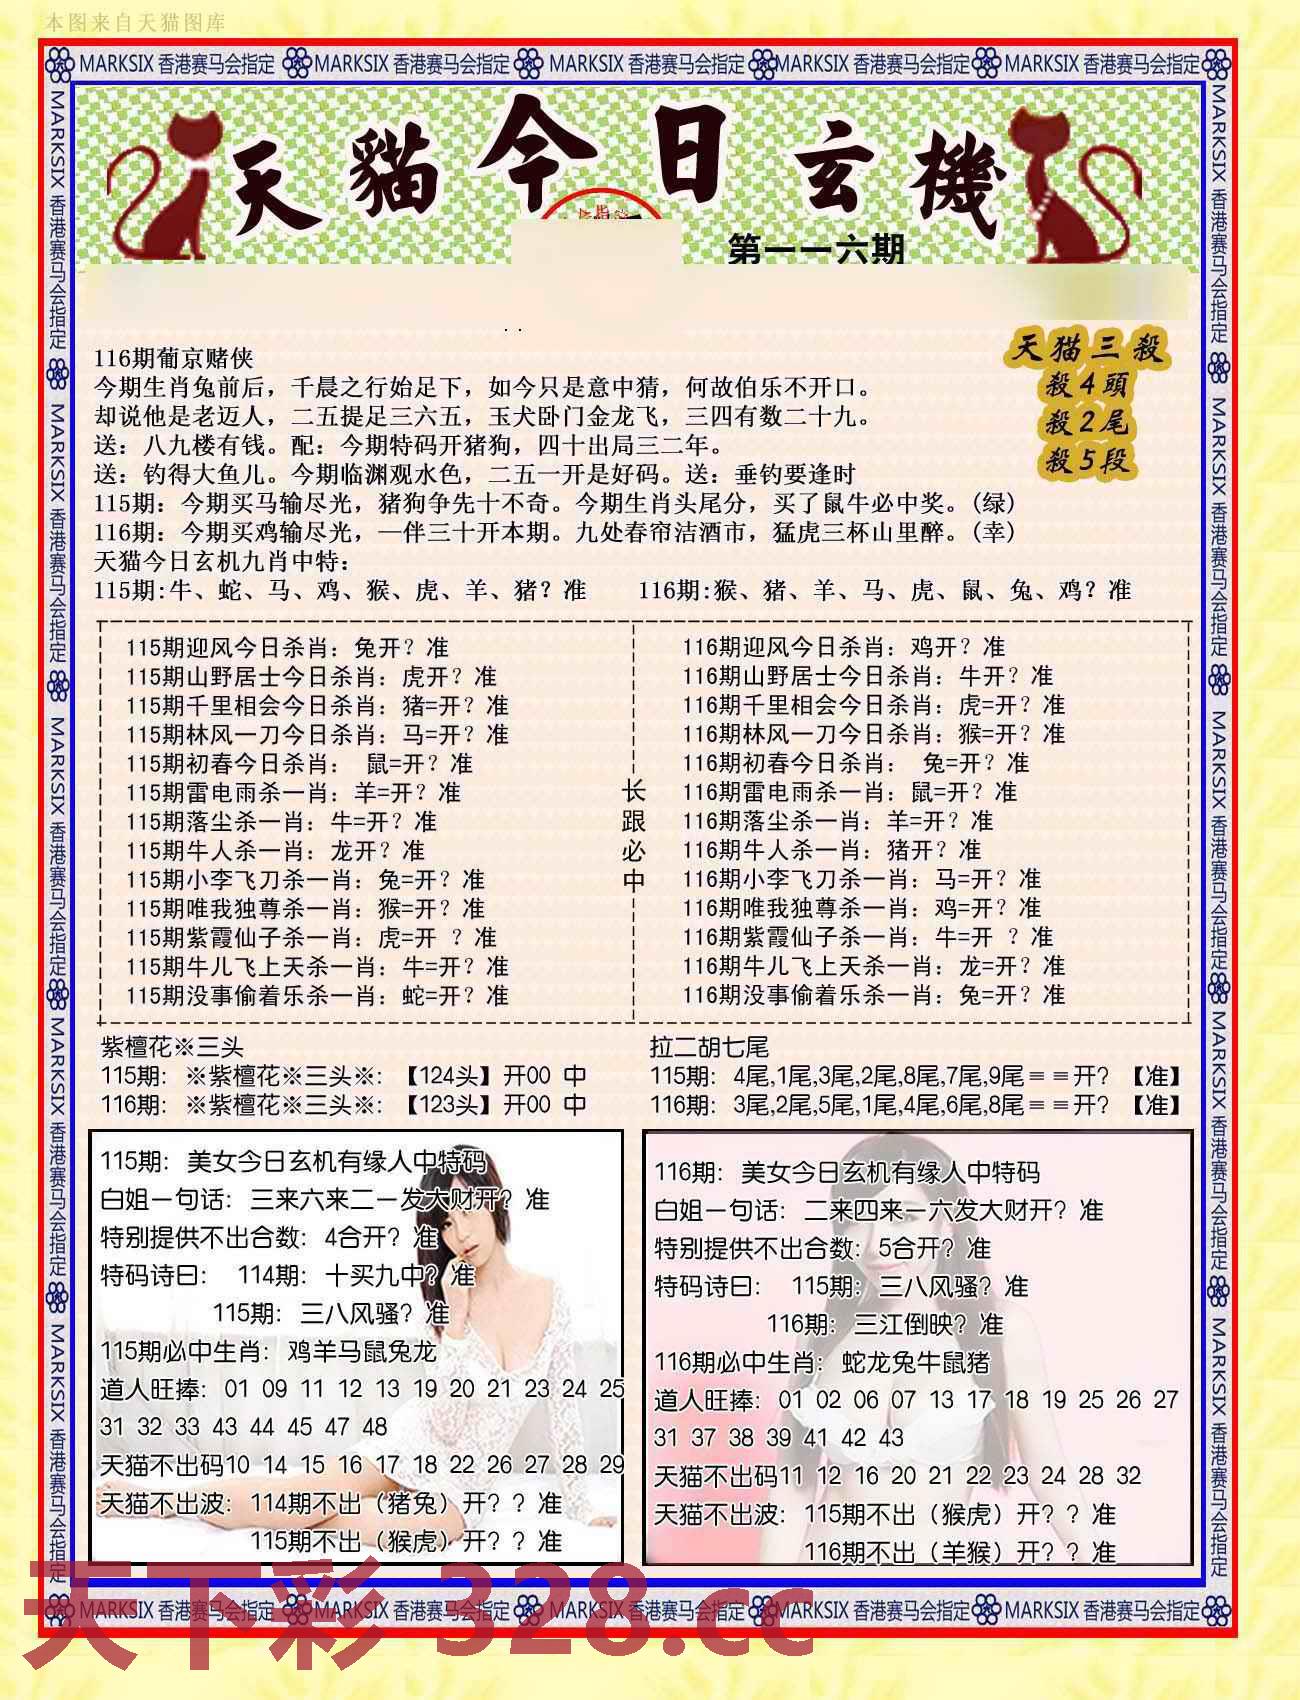 本图来自天猫图库
MARKSIX 香港赛马会指定 MARKSIX 香港赛马会指定 MARKSIX 香港赛马会指定 MARKSIX 香港赛马会指定 MARKSIX 香港赛马会指定
MARKSIX 香港赛马会指定 MARKSIX 香港赛马会指定 MARKSIX 香港赛马会指定 MARKSIX 香港赛马会指定 MARKSIX 香港赛马会指定
MARKSIX 香港赛马会指定 MARKSIX 香港赛马会指定 MARKSIX 香港赛马会指定 MARKSIX 香港赛马会指定 MARKSIX 香港赛马会指定
天貓今日玄機
第一一六期
天猫三殺
殺4頭
殺2尾
殺5段
116期葡京赌侠
今期生肖兔前后，千晨之行始足下，如今只是意中猜，何故伯乐不开口。
却说他是老迈人，二五提足三六五，玉犬卧门金龙飞，三四有数二十九。
送：八九楼有钱。配：今期特码开猪狗，四十出局三二年。
送：钓得大鱼儿。今期临渊观水色，二五一开是好码。送：垂钓要逢时
115期：今期买马输尽光，猪狗争先十不奇。今期生肖头尾分，买了鼠牛必中奖。(绿)
116期：今期买鸡输尽光，一伴三十开本期。九处春帘洁酒市，猛虎三杯山里醉。(幸)
天猫今日玄机九肖中特：
115期:牛、蛇、马、鸡、猴、虎、羊、猪？准 116期:猴、猪、羊、马、虎、鼠、兔、鸡？准
115期迎风今日杀肖：兔开？准
115期山野居士今日杀肖：虎开？准
115期千里相会今日杀肖：猪=开？准
115期林风一刀今日杀肖：马=开？准
115期初春今日杀肖： 鼠=开？准
115期雷电雨杀一肖：羊=开？准
115期落尘杀一肖：牛=开？准
115期牛人杀一肖：龙开？准
115期小李飞刀杀一肖：兔=开？准
115期唯我独尊杀一肖：猴=开？准
115期紫霞仙子杀一肖：虎=开 ？准
115期牛儿飞上天杀一肖：牛=开？准
115期没事偷着乐杀一肖：蛇=开？准
长跟必中
116期迎风今日杀肖：鸡开？准
116期山野居士今日杀肖：牛开？准
116期千里相会今日杀肖：虎=开？准
116期林风一刀今日杀肖：猴=开？准
116期初春今日杀肖： 兔=开？准
116期雷电雨杀一肖：鼠=开？准
116期落尘杀一肖：羊=开？准
116期牛人杀一肖：猪开？准
116期小李飞刀杀一肖：马=开？准
116期唯我独尊杀一肖：鸡=开？准
116期紫霞仙子杀一肖：牛=开 ？准
116期牛儿飞上天杀一肖：龙=开？准
116期没事偷着乐杀一肖：兔=开？准
紫檀花※三头
115期：※紫檀花※三头※：【124头】开00 中
116期：※紫檀花※三头※：【123头】开00 中
拉二胡七尾
115期：4尾,1尾,3尾,2尾,8尾,7尾,9尾≡≡开？【准】
116期：3尾,2尾,5尾,1尾,4尾,6尾,8尾≡≡开？【准】
115期：美女今日玄机有缘人中特码
白姐一句话：三来六来二一发大财开？准
特别提供不出合数：4合开？准
特码诗曰： 114期：十买九中？准
115期：三八风骚？准
115期必中生肖：鸡羊马鼠兔龙
道人旺捧：01 09 11 12 13 19 20 21 23 24 25
31 32 33 43 44 45 47 48
天猫不出码10 14 15 16 17 18 22 26 27 28 29
天猫不出波：114期不出（猪兔）开？？准
115期不出（猴虎）开？？准
116期：美女今日玄机有缘人中特码
白姐一句话：二来四来一六发大财开？准
特别提供不出合数：5合开？准
特码诗曰： 115期：三八风骚？准
116期：三江倒映？准
116期必中生肖：蛇龙兔牛鼠猪
道人旺捧：01 02 06 07 13 17 18 19 25 26 27
31 37 38 39 41 42 43
天猫不出码11 12 16 20 21 22 23 24 28 32
天猫不出波：115期不出（猴虎）开？？准
116期不出（羊猴）开？？准
MARKSIX 香港赛马会指定 MARKSIX 香港赛马会指定 MARKSIX 香港赛马会指定 MARKSIX 香港赛马会指定 MARKSIX 香港赛马会指定
天下彩 328.cc